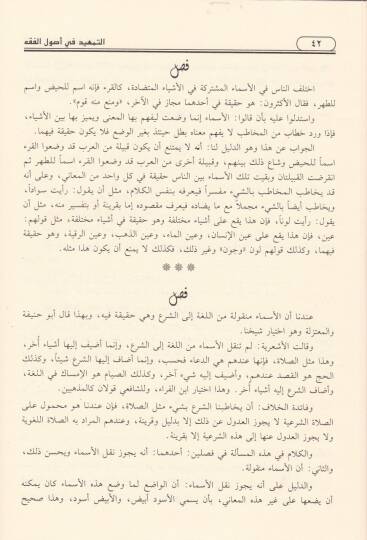 ٤٢
التمهيد في أصول الفقه
فصل
اختلف الناس في الأسماء المشتركة في الأشياء المتضادة، كالقرء فإنه اسم للحيض واسم
للطهر، فقال الأكثرون: هو حقيقة في أحدهما مجاز في الآخر، «ومنع منه قوم».
واستدلوا عليه بأن قالوا: الأسماء إنما وضعت ليفهم بها المعنى ويميز بها بين الأشياء،
فإذا ورد خطاب من المخاطب لا يفهم معناه بطل حينئذ بغير الوضع فلا يكون حقيقة فيهما.
الجواب عن هذا وهو الدليل لنا: أنه لا يمتنع أن يكون قبيلة من العرب قد وضعوا القرء
اسماً للحيض وشاع ذلك بينهم، وقبيلة أخرى من العرب قد وضعوا القرء اسماً للطهر ثم
انقرضت القبيلتان وبقيت تلك الأسماء بين الناس حقيقة في كل واحد من المعاني، وعلى أنه
قد يخاطب المخاطب بالشيء مفسراً فيعرفه بنفس الكلام، مثل أن يقول: رأيت سواداً،
ويخاطب أيضاً بالشيء مجملاً مع ما يضاده فيعرف مقصوده إما بقرينة أو بتفسير منه، مثل أن
يقول: رأيت لوناً، فإن هذا يقع على أشياء مختلفة وهو حقيقة في أشياء مختلفة، مثل قولهم:
عين، فإن هذا يقع على عين الإنسان، وعين الماء، وعين الذهب، وعين الرقية، وهو حقيقة
فيهما، وكذلك قولهم لون «وجون» وغير ذلك، فكذلك لا يمنع أن يكون هذا مثله.
***
فصل
عندنا أن الأسماء منقولة من اللغة إلى الشرع وهي حقيقة فيه، وبهذا قال أبو حنيفة
والمعتزلة وهو اختيار شيخنا.
وقالت الأشعرية: لم تنقل الأسماء من اللغة إلى الشرع، وإنما أضيف إليها أشياء أخر،
وهذا مثل الصلاة، فإنها عندهم هي الدعاء فحسب، وإنما أضاف إليها الشرع شيئاً، وكذلك
الحج هو القصد عندهم، وأضيف إليه شيء آخر، وكذلك الصيام هو الإمساك في اللغة،
وأضاف الشرع إليه أشياء أخر. وهذا اختيار ابن الفراء، وللشافعي قولان كالمذهبين.
وفائدة الخلاف: أن يخاطبنا الشرع بشيء مثل الصلاة، فإن عندنا هو محمول على
الصلاة الشرعية لا يجوز العدول عن ذلك إلا بدليل وقرينة، وعندهم المراد به الصلاة اللغوية
ولا يجوز العدول عنها إلى هذه الشرعية إلا بقرينة.
والكلام في هذه المسألة في فصلين: أحدهما: أنه يجوز نقل الأسماء ويحسن ذلك،
والثاني: أن الأسماء منقولة.
والدليل على أنه يجوز نقل الأسماء: أن الواضع لما وضع هذه الأسماء كان يمكنه
أن يضعها على غير هذه المعاني، بأن يسمي الأسود أبيض، والأبيض أسود، وهذا صحيح